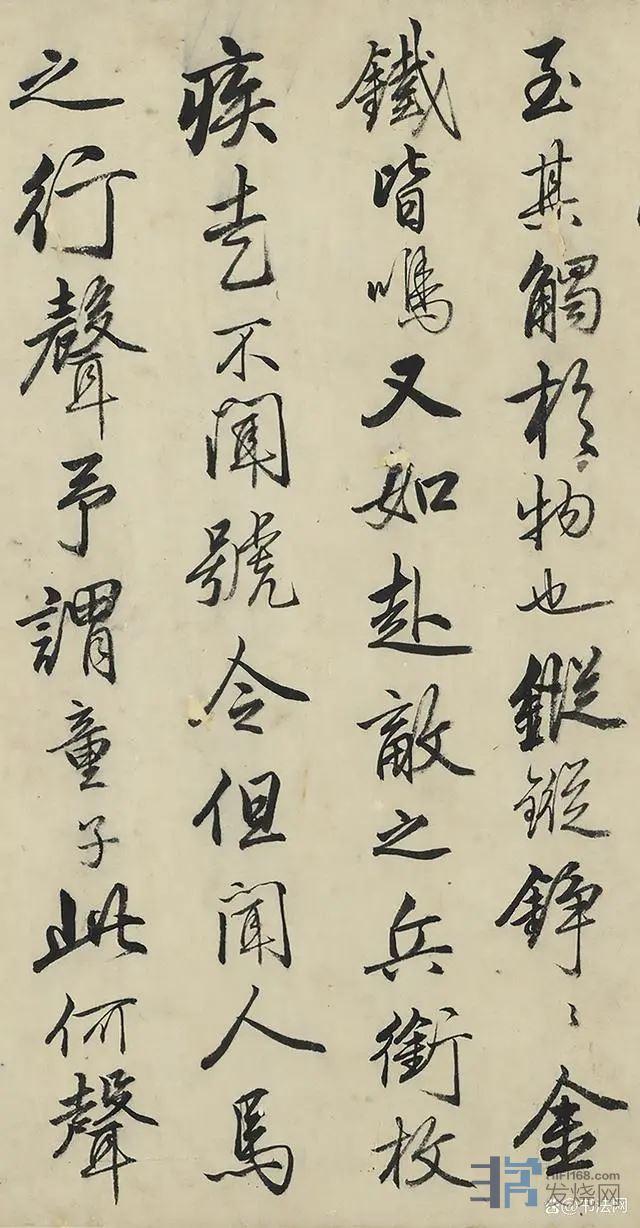 至其觸於物也鏦鏦錚〻金
鐵皆鳴又如赴敵之兵銜枚
疾走不聞號令但聞人馬
之行聲予謂童子此何聲
HIFI168.com
发烧网
@书法网